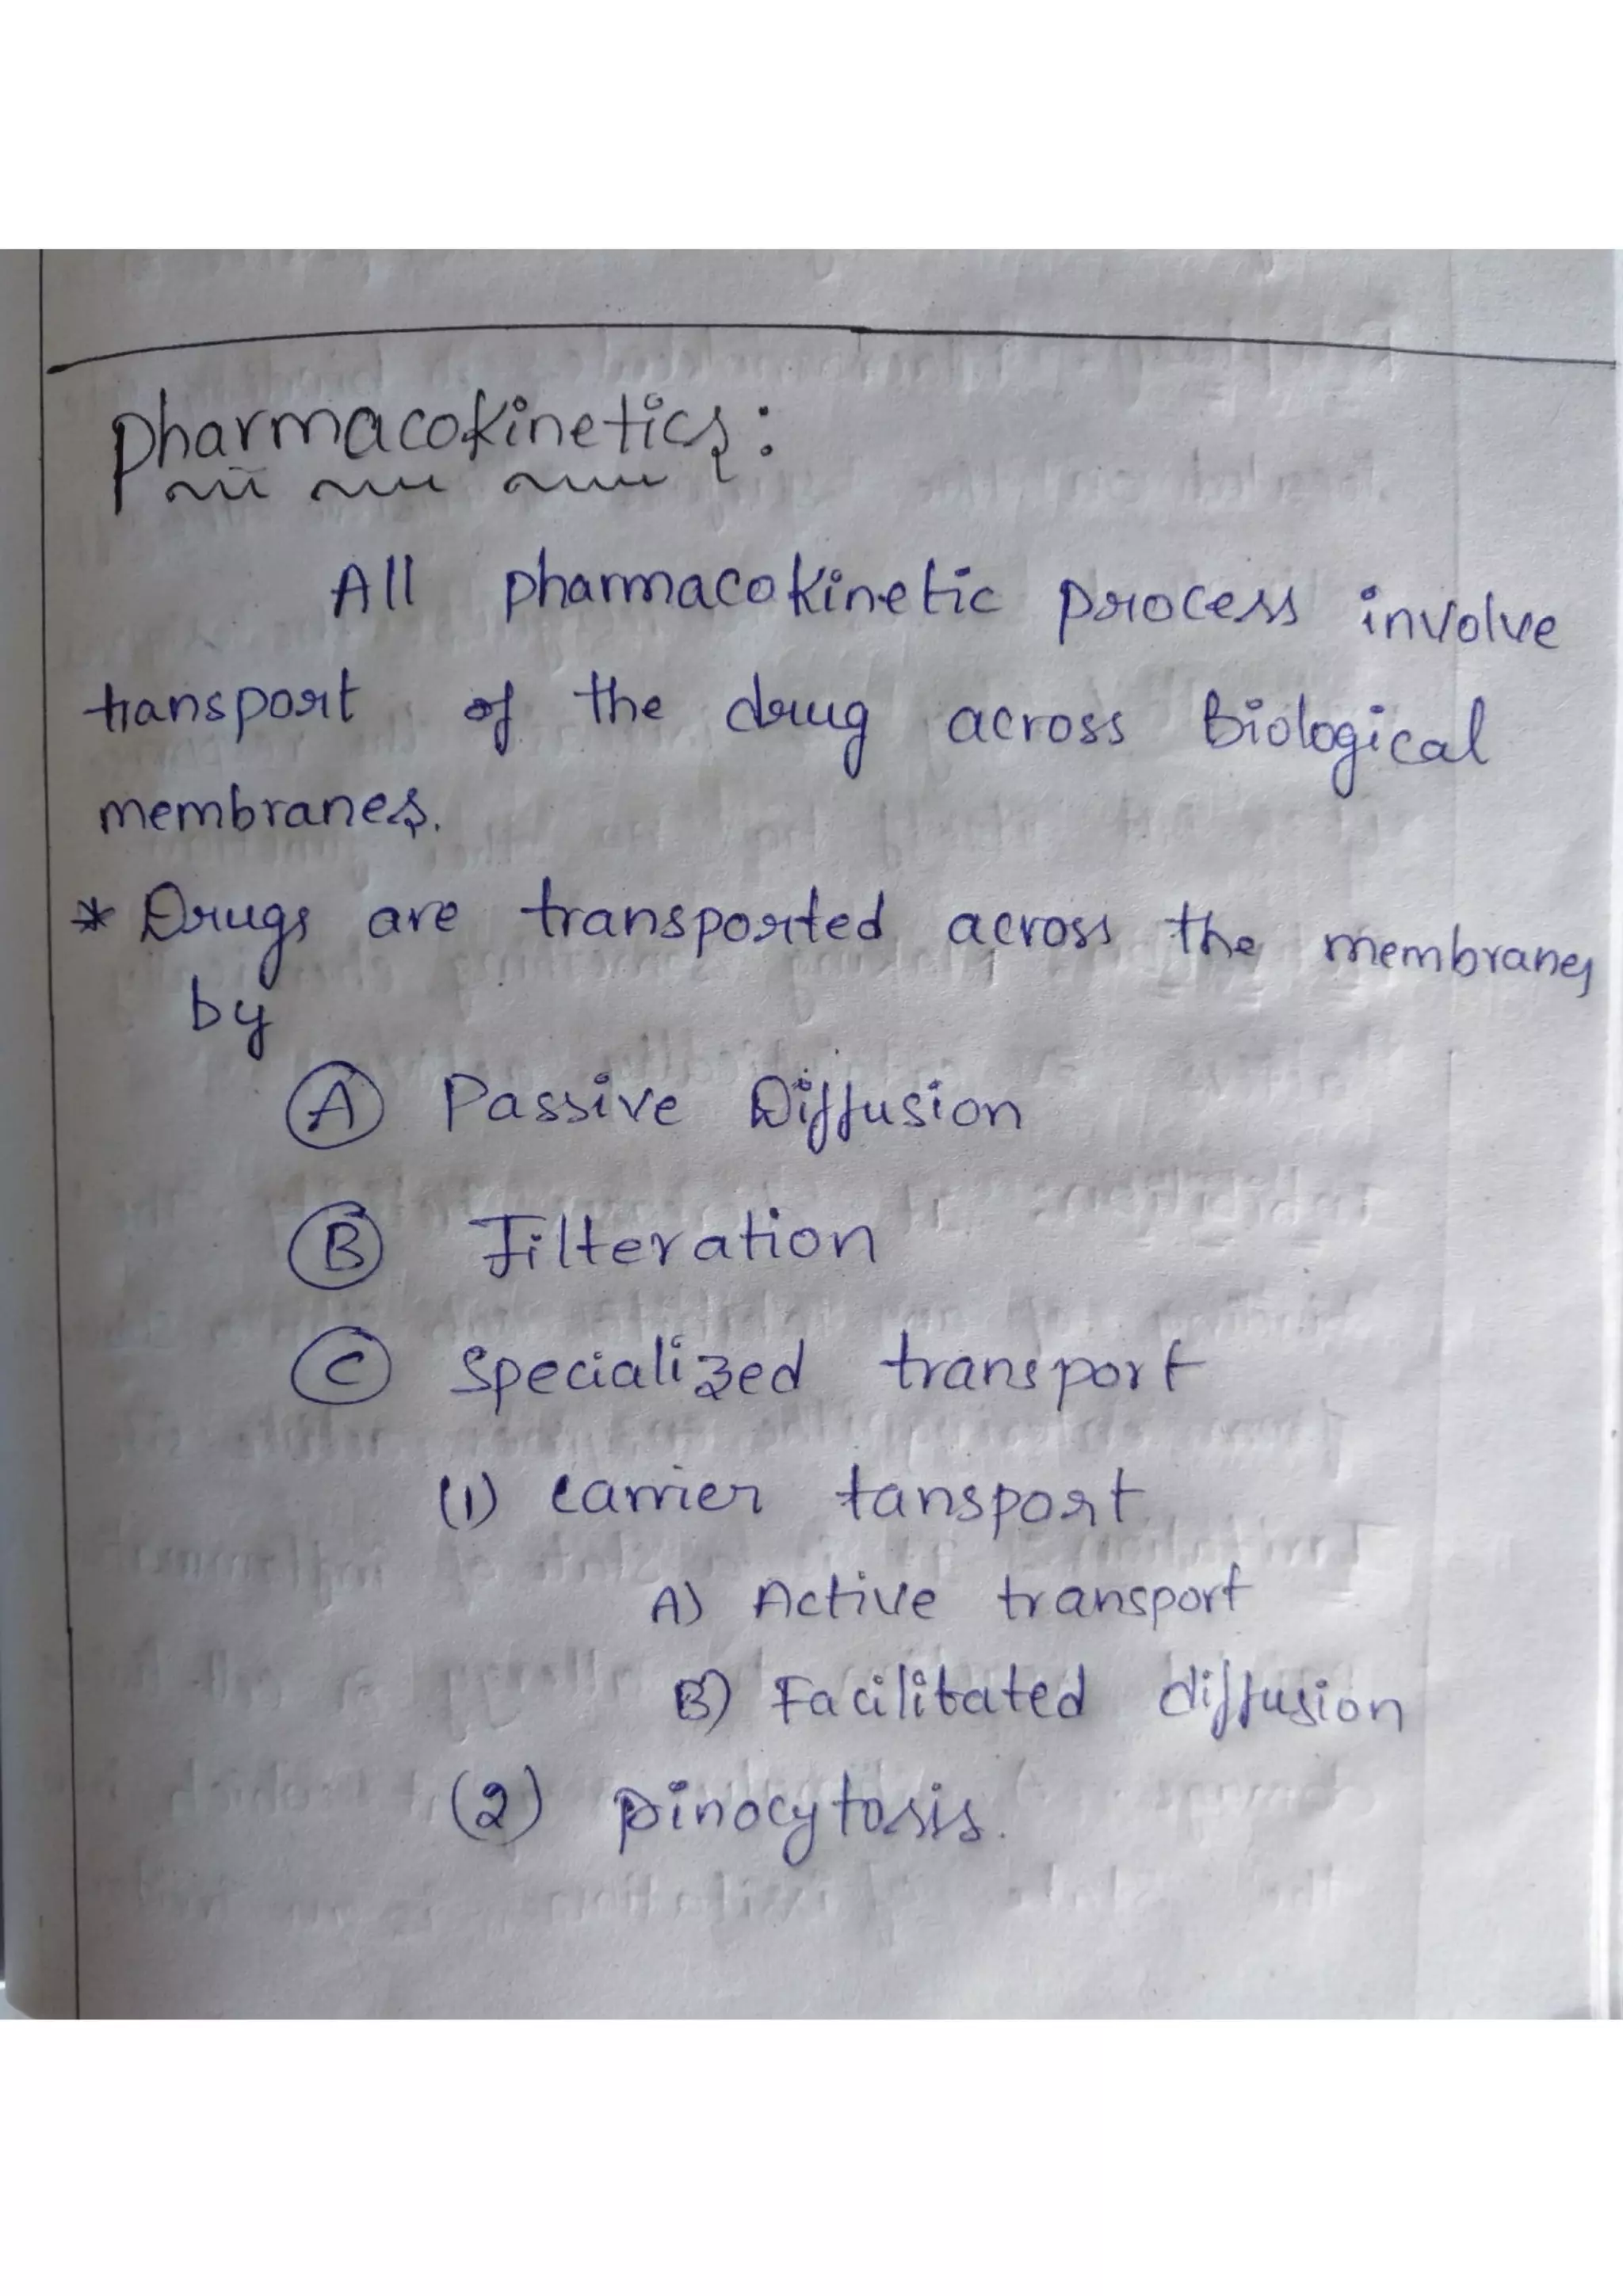 Pharmacokinetics:
All pharmacokinetic process involve
transport of the drug across Biological
membranes.
* Drugs are transported across the membranes
by
(A) Passive Diffusion
(B) Filteration
(C) Specialized transport
(1) carrier tansport
A) Active transport
B) Facilitated diffusion
(2) pinocytosis.